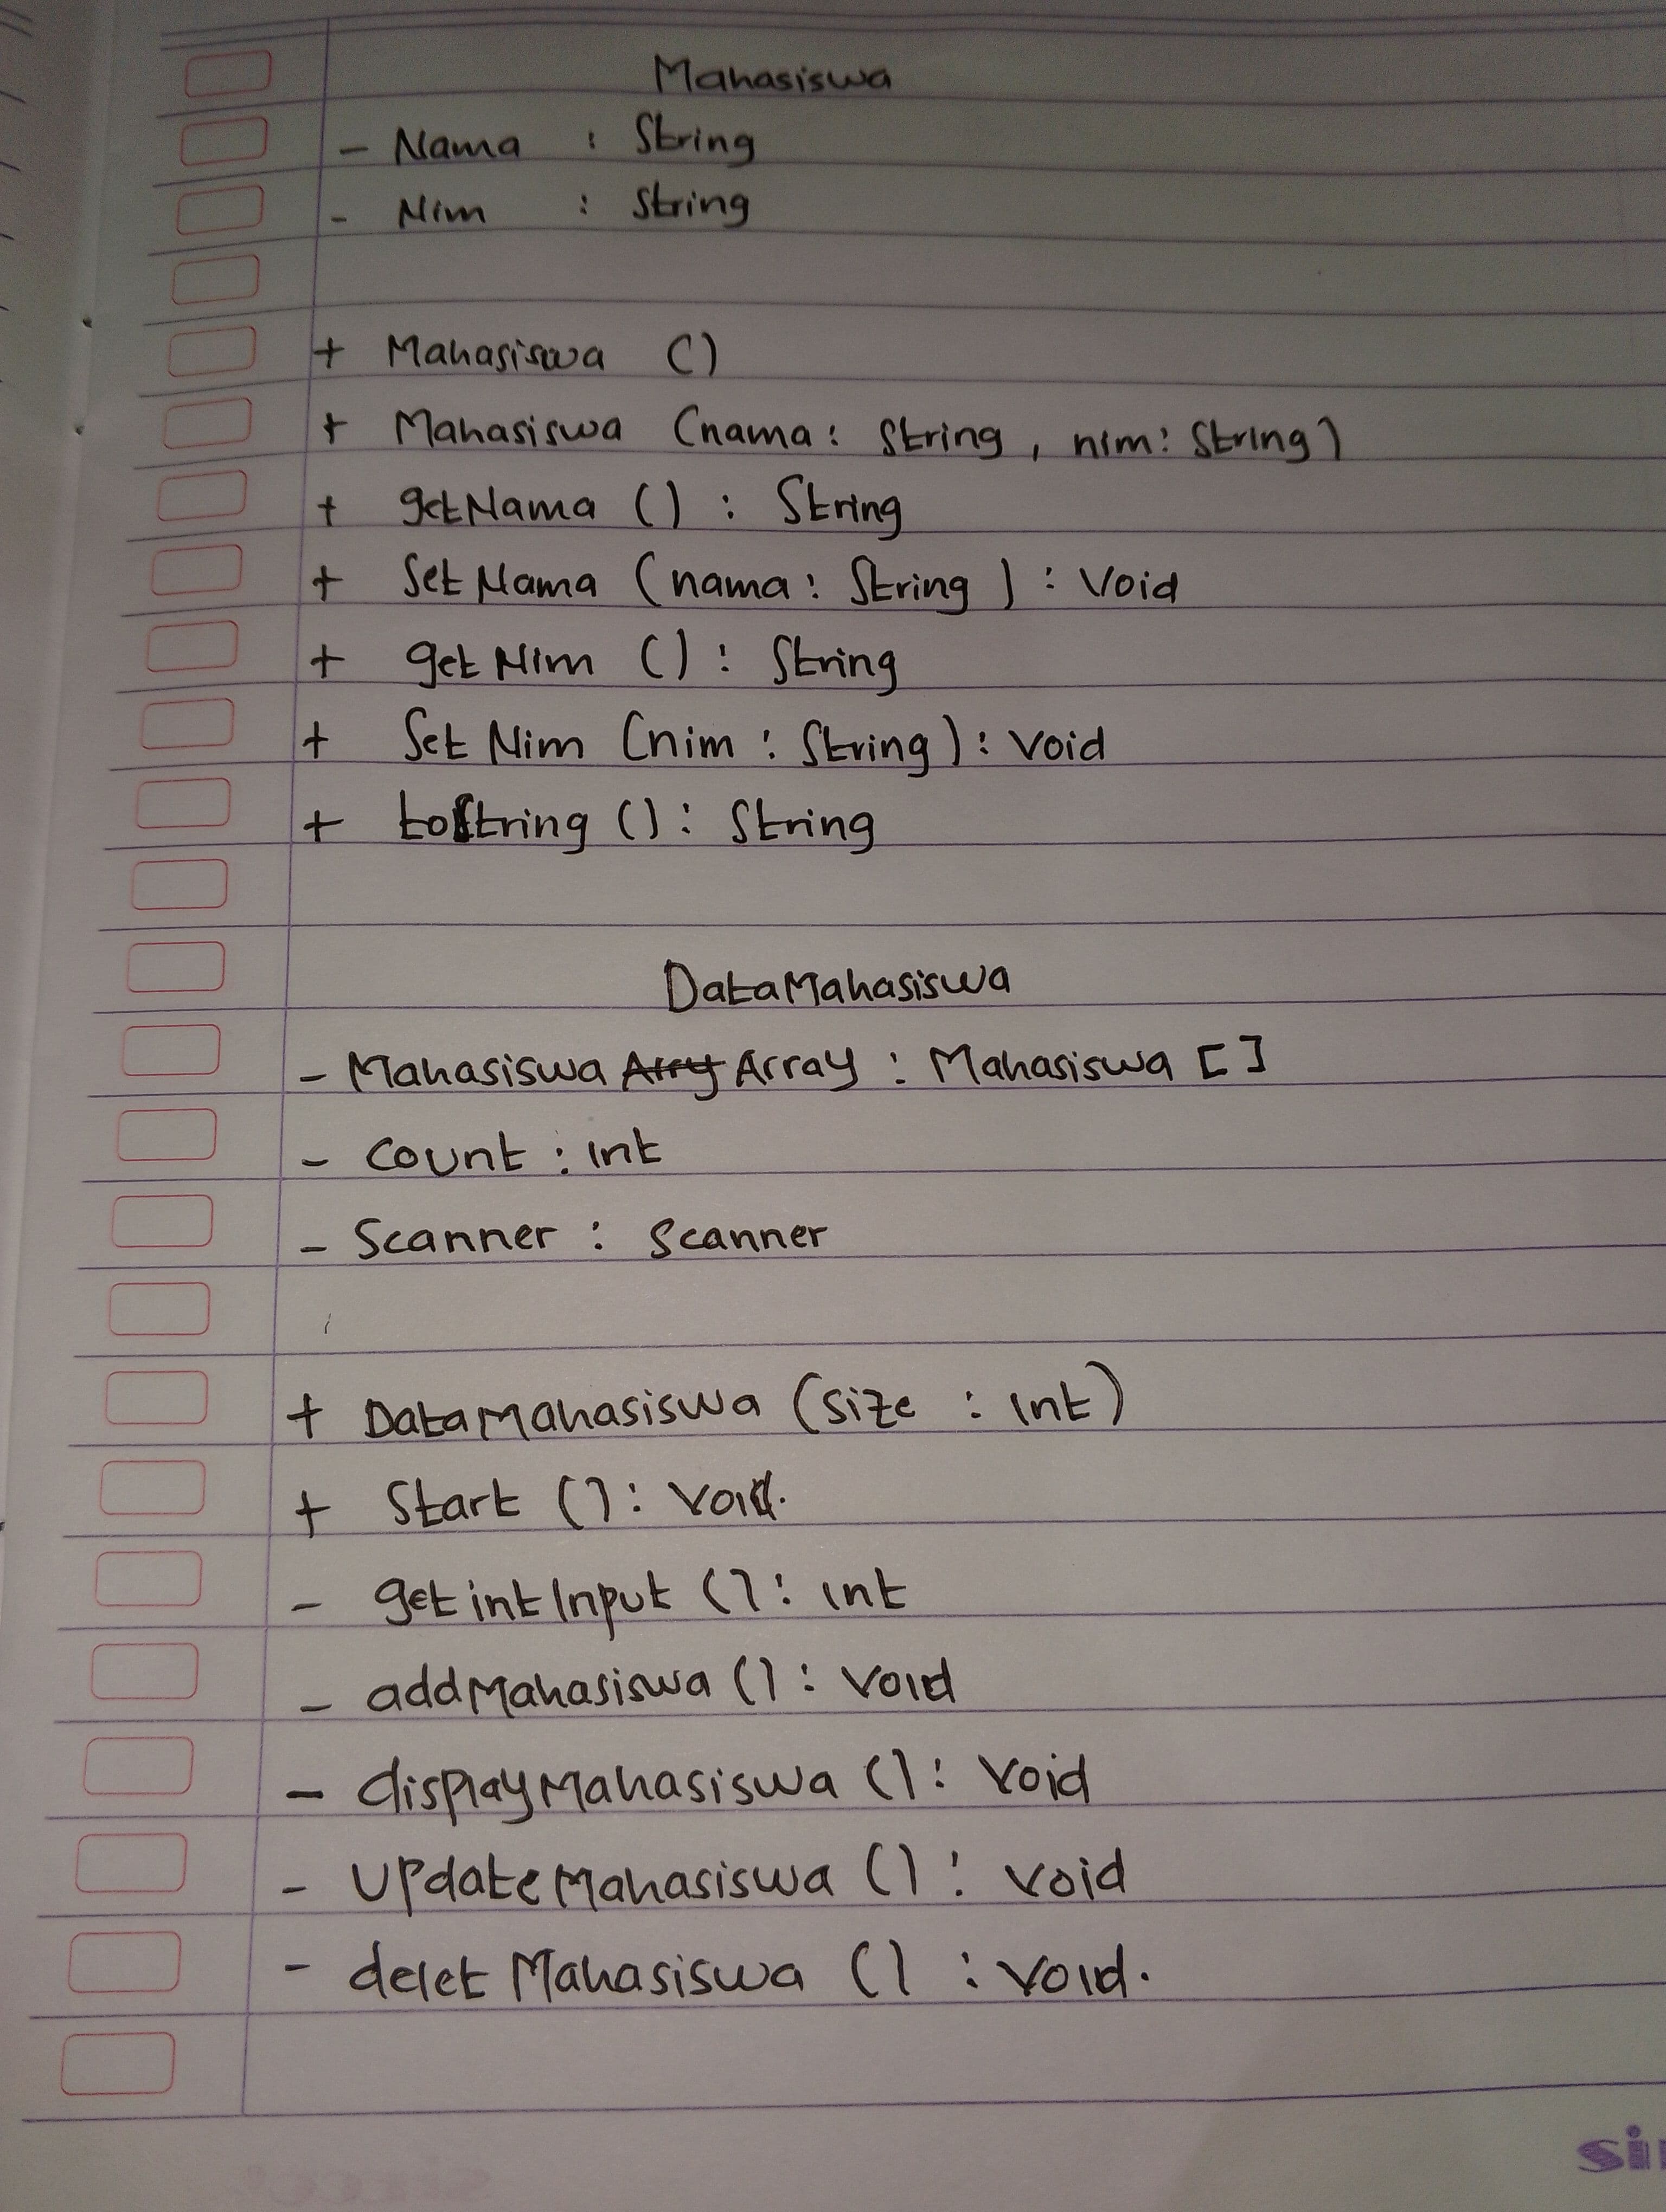 Mahasiswa
- Nama : String
- Nim : String
+ Mahasiswa ()
+ Mahasiswa (nama: String, nim: String)
+ getNama () : String
+ SetNama (nama: String) : Void
+ getNim () : String
+ SetNim (nim : String) : Void
+ toString () : String
DataMahasiswa
- Mahasiswa Array : Mahasiswa []
- Count : int
- Scanner : Scanner
+ DataMahasiswa (size : int)
+ Start () : Void.
- getintInput () : int
- addMahasiswa () : Void
- displayMahasiswa () : Void
- UpdateMahasiswa () : Void
- deletMahasiswa () : Void.